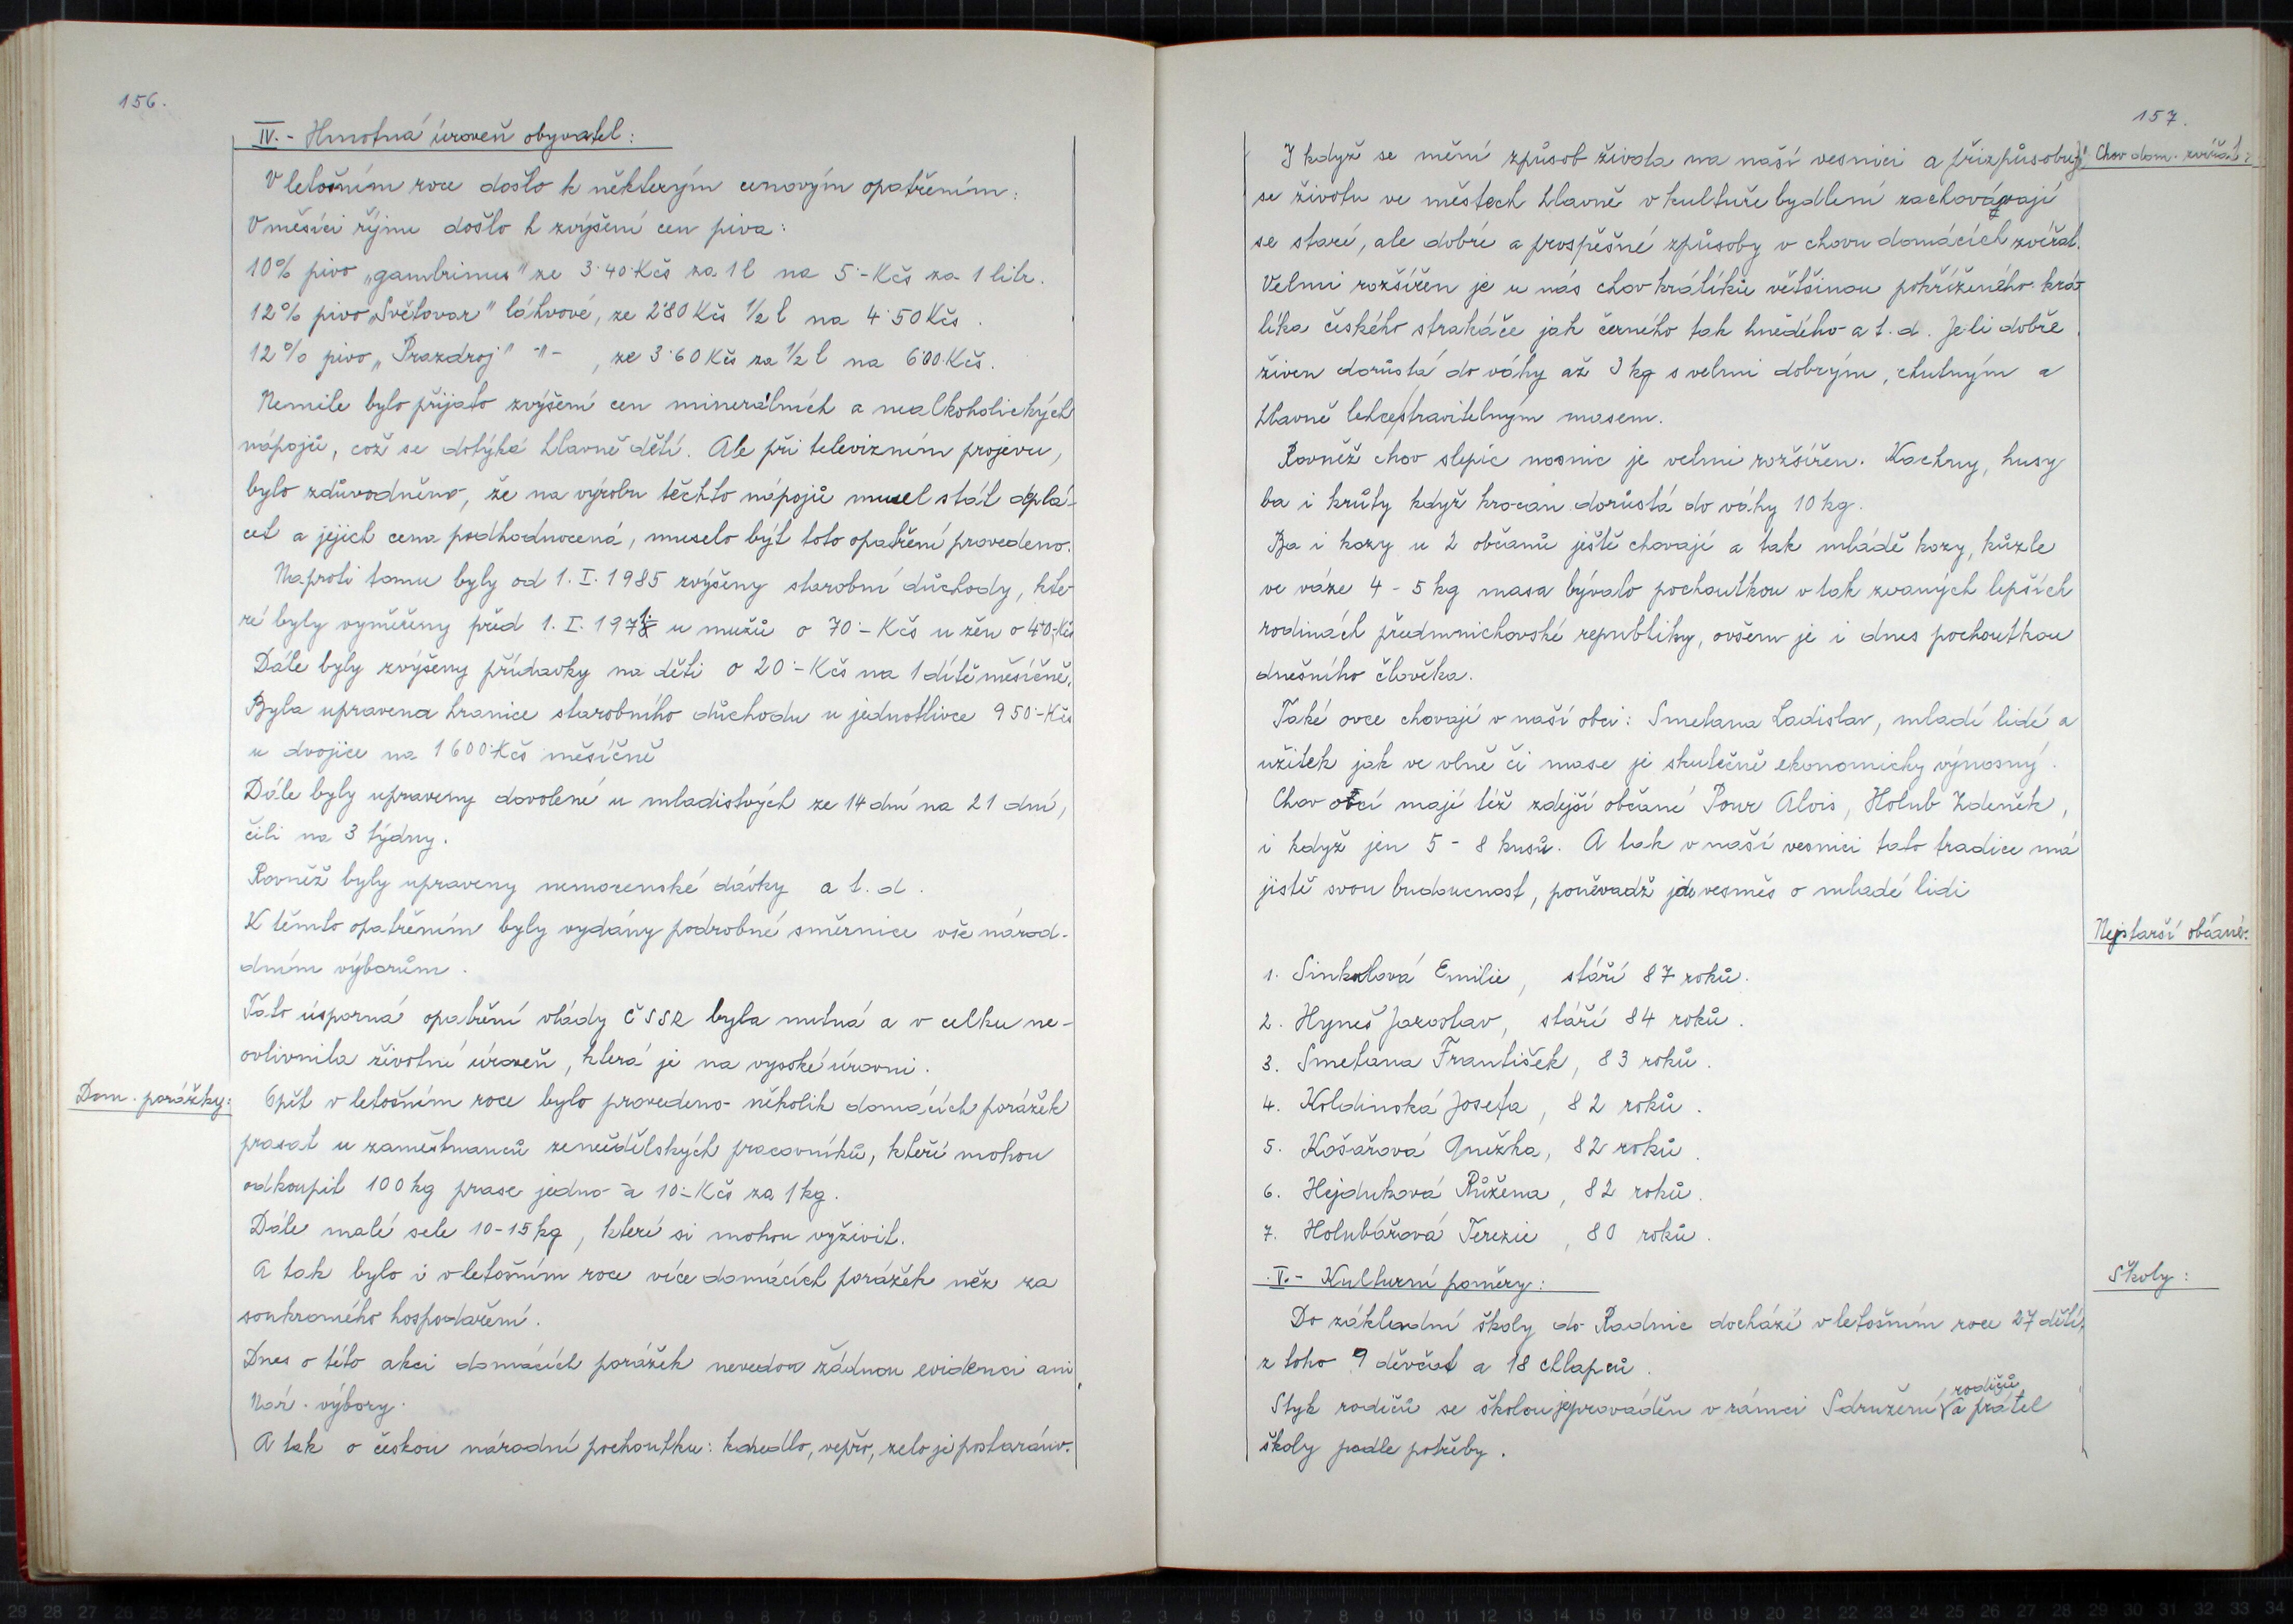 156.
IV. - Hmotná úroveň obyvatel:
V letošním roce došlo k některým cenovým opatřením:
V měsíci říjnu došlo k zvýšení cen piva:
10% pivo „gambrinus" ze 3˙40 Kčs za 1 l na 5˙- Kčs za 1 litr.
12% pivo „Světovar" láhvové, ze 2˙80 Kčs ½ l na 4˙50 Kčs.
12% pivo „Prazdroj" -"- , ze 3˙60 Kčs za ½ l na 6˙00 Kčs.
Nemile bylo přijato zvýšení cen minerálních a nealkoholických
nápojů, což se dotýká hlavně dětí. Ale při televizním projevu,
bylo zdůvodněno, že na výrobu těchto nápojů musel stát doplá-
cet a jejich cena podhodnocená, muselo být toto opatření provedeno.
Naproti tomu byly od 1. I. 1985 zvýšeny starobní důchody, kte-
ré byly vyměřeny před 1. I. 197 u mužů o 70˙- Kčs u žen o 40,- Kčs
Dále byly zvýšeny přídavky na děti o 20˙- Kčs na 1 dítě měsíčně.
Byla upravena hranice starobního důchodu u jednotlivce 950˙- Kčs
u dvojice na 1600˙Kčs měsíčně
Dále byly upraveny dovolené u mladistvých ze 14 dní na 21 dní,
čili na 3 týdny.
Rovněž byly upraveny nemocenské dávky a t. d.
K těmto opatřením byly vydány podrobné směrnice vše národ-
dním výborům.
Tato úsporná opatření vlády ČSSR byla nutná a v celku ne-
ovlivnila životní úroveň, která je na vysoké úrovni.
Dom. porážky:
Opět v letošním roce bylo provedeno několik domácích porážek
prasat u zaměstnanců zemědělských pracovníků, kteří mohou
odkoupit 100 kg prase jedno a 10˙- Kčs za 1 kg.
Dále malé sele 10-15 kg, které si mohou vyživit.
A tak bylo i v letošním roce více domácích porážek něž za
soukromého hospodaření.
Dnes o této akci domácích porážek nevedou žádnou evidenci ani
Nár. výbory.
A tak o českou národní pochoutku: knedlo, vepřo, zelo je postaráno.
157.
Chov dom. zvířat:
I když se mění způsob života na naší vesnici a přizpůsobují
se životu ve městech hlavně v kultuře bydlení zachovávají
se staré, ale dobré a prospěšné způsoby v chovu domácích zvířat.
Velmi rozšířen je u nás chov králíků většinou pokříženého krá-
líka českého strakáče jak černého tak hnědého a t. d. Je li dobře
živen dorůstá do váhy až 3 kg s velmi dobrým, chutným a
hlavně lehce stravitelným masem.
Rovněž chov slepic nosnic je velmi rozšířen. Kachny, husy
ba i krůty když krocan dorůstá do váhy 10 kg.
Ba i kozy u 2 občanů ještě chovají a tak mládě kozy, kůzle
ve váze 4 - 5 kg masa bývalo pochoutkou v tak zvaných lepších
rodinách předmnichovské republiky, ovšem je i dnes pochoutkou
dnešního člověka.
Také ovce chovají v naší obci: Smetana Ladislav, mladí lidé a
užitek jak ve vlně či mase je skutečně ekonomicky výnosný.
Chov ovcí mají též zdejší občané Pour Alois, Holub Zdeněk,
i když jen 5 - 8 kusů. A tak v naší vesnici tato tradice má
jistě svou budoucnost, poněvadž jde vesměs o mladé lidi
Nejstarší občané:
1. Sinkulová Emilie, stáří 87 roků.
2. Hyneš Jaroslav, stáří 84 roků.
3. Smetana František, 83 roků.
4. Koldinská Josefa, 82 roků.
5. Košařová Anežka, 82 roků.
6. Hejduková Růžena, 82 roků.
7. Holubářová Terezie, 80 roků.
V. - Kulturní poměry:
Školy:
Do základní školy do Radnic dochází v letošním roce 27 dětí,
z toho 9 děvčat a 18 chlapců.
Styk rodičů se školou je prováděn v rámci Sdružení rodičů a přátel
školy podle potřeby.